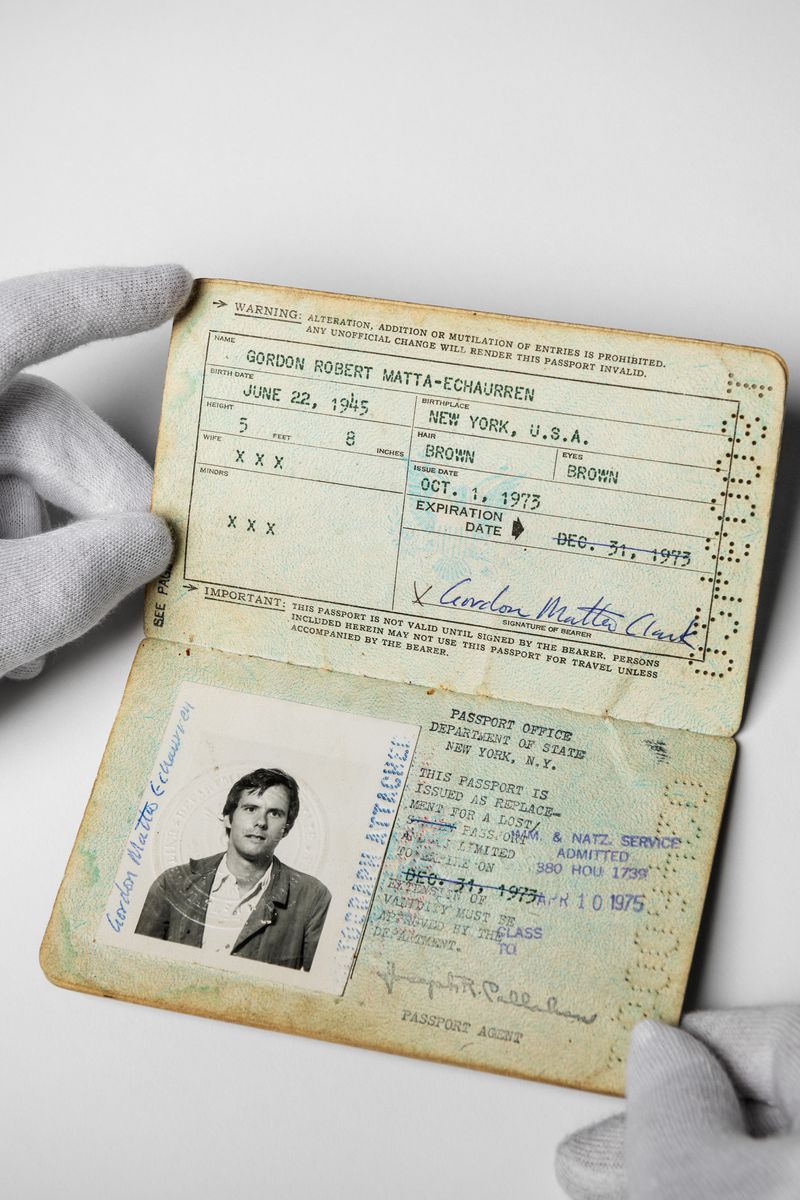 WARNING: ALTERATION, ADDITION OR MUTILATION OF ENTRIES IS PROHIBITED.
ANY UNOFFICIAL CHANGE WILL RENDER THIS PASSPORT INVALID.
NAME
GORDON ROBERT MATTA-ECHAURREN
BIRTH DATE
JUNE 22, 1945
BIRTHPLACE
NEW YORK, U.S.A.
HEIGHT
5 FEET 8 INCHES
HAIR
BROWN
EYES
BROWN
WIFE
X X X
ISSUE DATE
OCT. 1, 1973
MINORS
X X X
EXPIRATION
DATE
DEC. 31, 1973
X Gordon Matta Clark
SIGNATURE OF BEARER
IMPORTANT: THIS PASSPORT IS NOT VALID UNTIL SIGNED BY THE BEARER. PERSONS
INCLUDED HEREIN MAY NOT USE THIS PASSPORT FOR TRAVEL UNLESS
ACCOMPANIED BY THE BEARER.
SEE
Gordon Matta Echaurren
PHOTOGRAPH ATTACHED
PASSPORT OFFICE
DEPARTMENT OF STATE
NEW YORK, N.Y.
THIS PASSPORT IS
ISSUED AS REPLACE-
MENT FOR A LOST/
PASSPORT
LIMITED
TO EXPIRE ON
DEC. 31, 1973
EXTENSION OF
VALIDITY MUST BE
APPROVED BY THE
DEPARTMENT.
IMM. & NATZ. SERVICE
ADMITTED
380 HOU 1739
APR 10 1975
CLASS
TO
PASSPORT AGENT